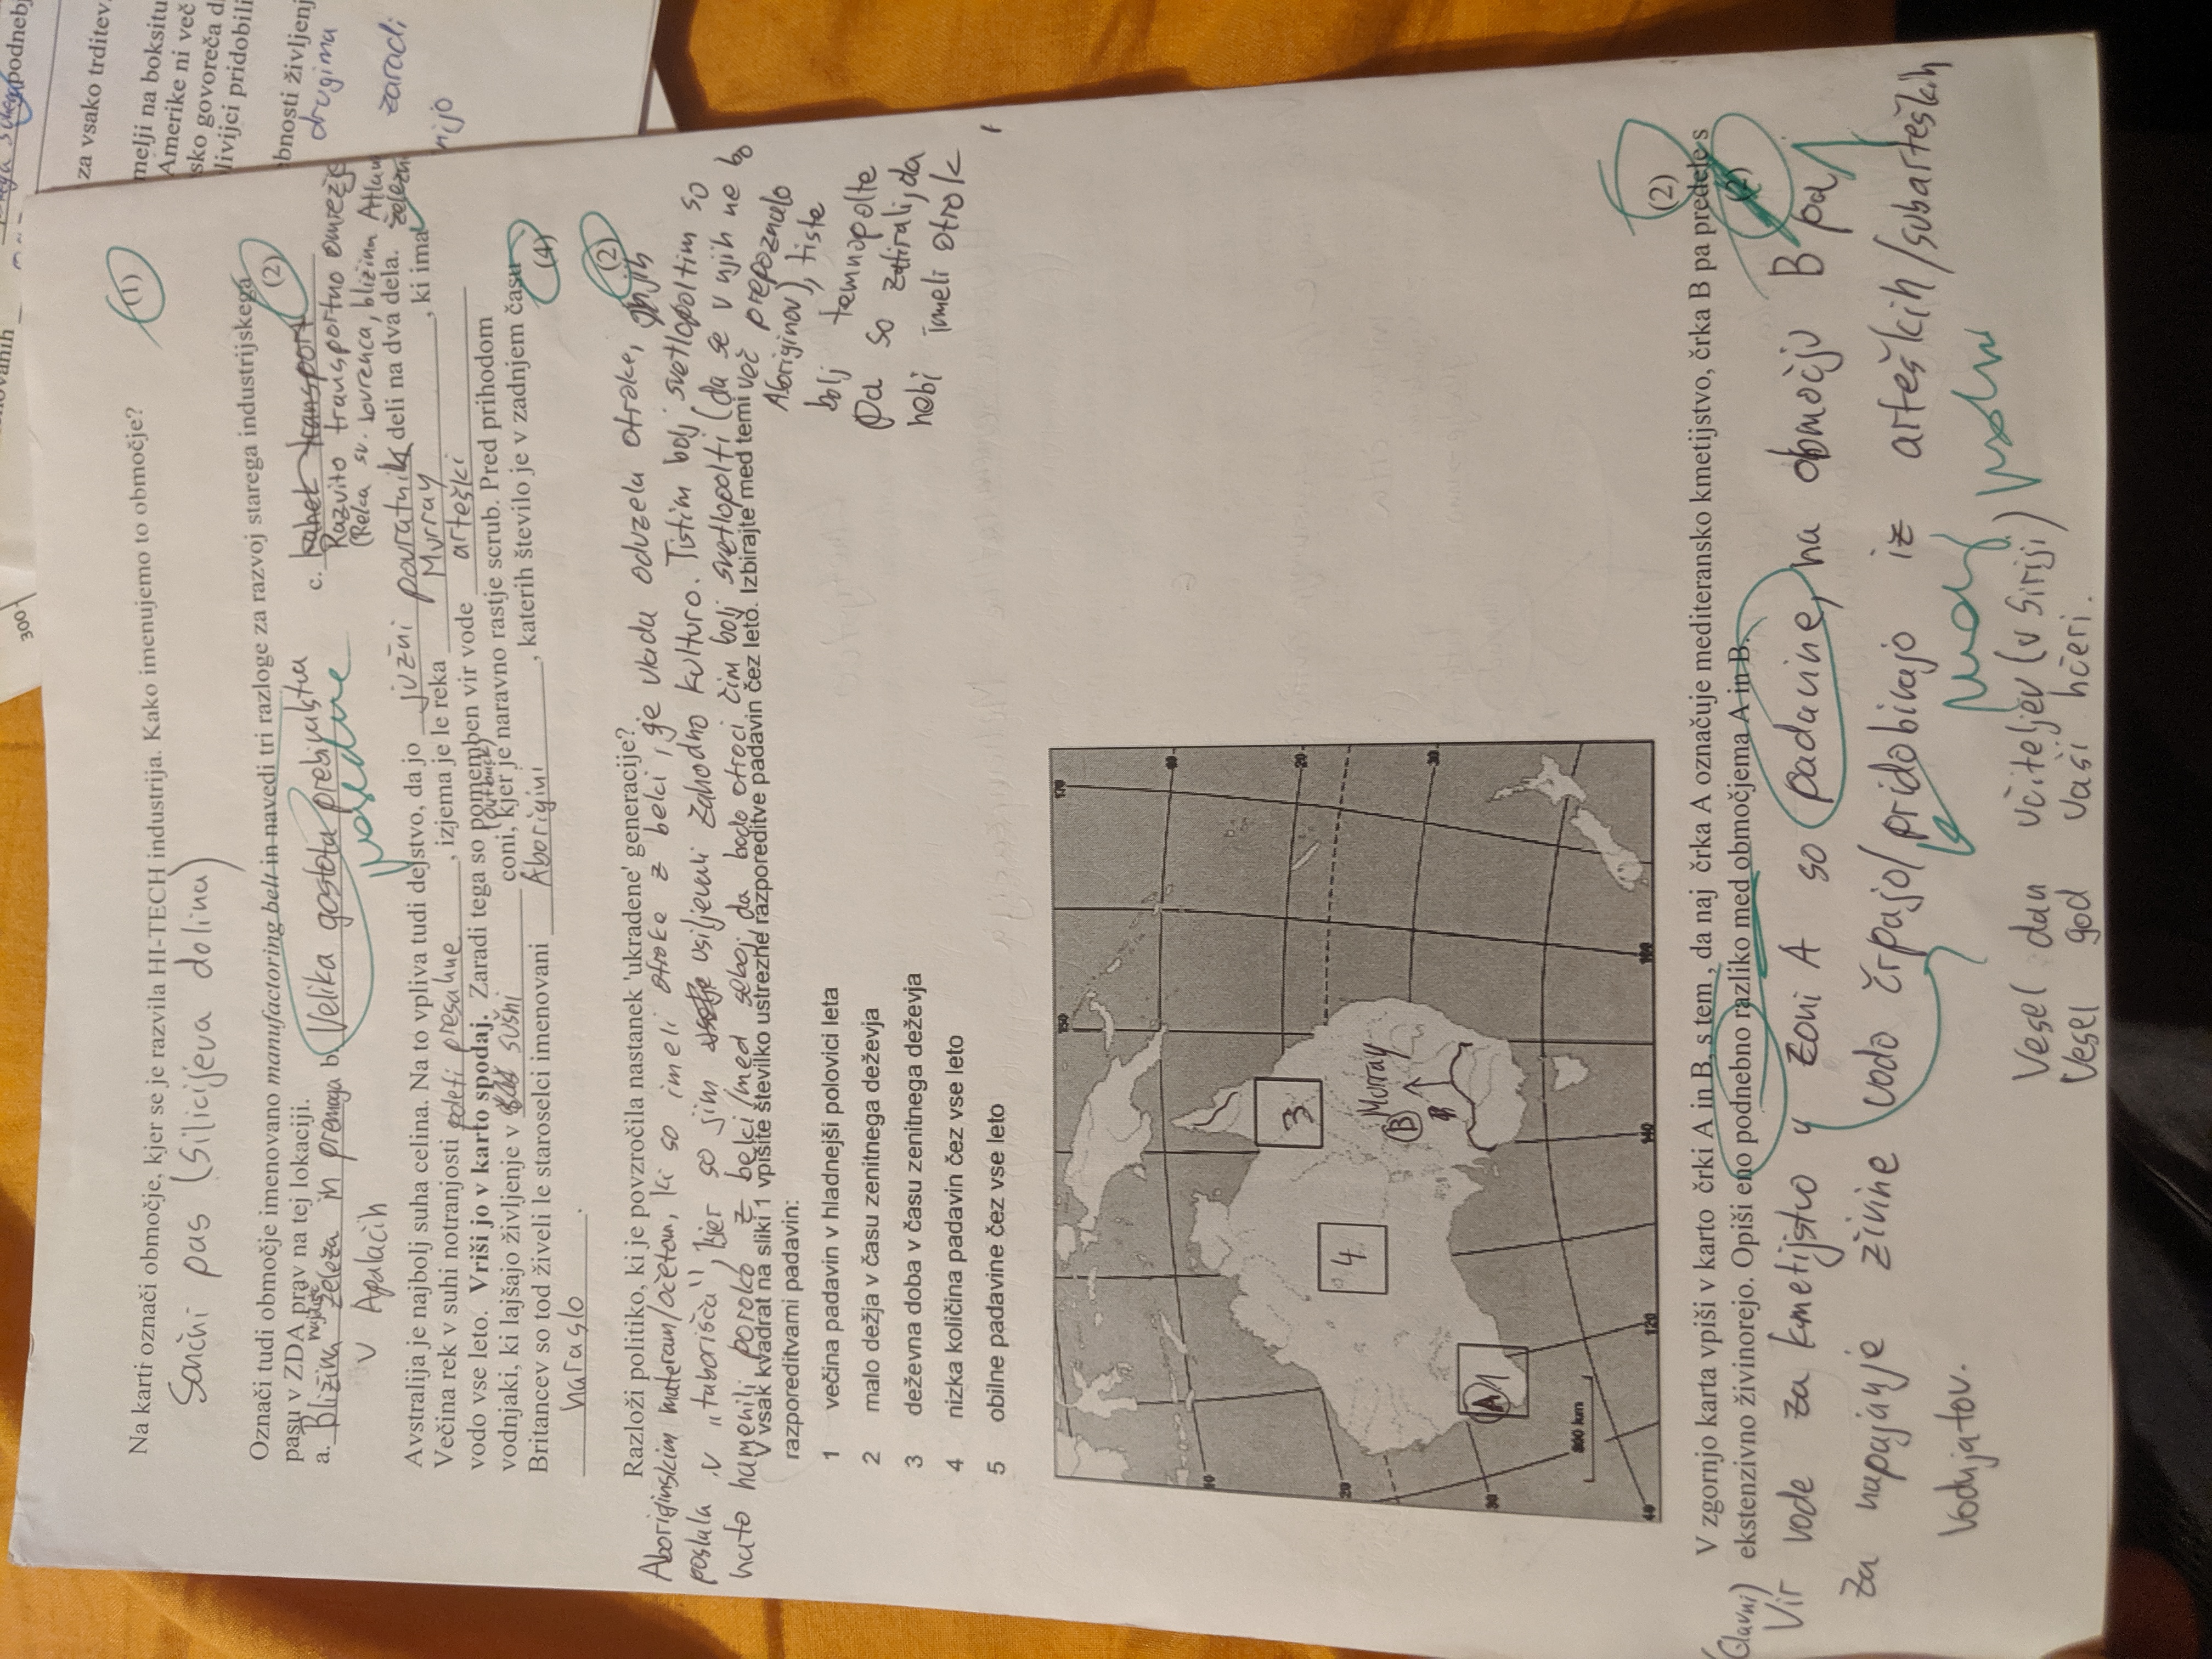 300
podneb
za vsako trditev
melji na boksitu
Amerike ni več
sko govoreča d
livijci pridobili
ebnosti življenj
drugima
zaradi
nijo
Na karti označi območje, kjer se je razvila HI-TECH industrija. Kako imenujemo to območje?
(1)
Sončni pas (Silicijeva dolina)
Označi tudi območje imenovano manufactoring belt in navedi tri razloge za razvoj starega industrijskega
pasu v ZDA prav na tej lokaciji.
(2)
a. Bližina najdišč železa in premoga b. Velika gostota prebivalstva c. kahek transport
v Apalačih
posledice
Razvito transportno omrežje
(Reka sv. Lovrenca, bližina Atlan
železn
Avstralija je najbolj suha celina. Na to vpliva tudi dejstvo, da jo južni povratnik deli na dva dela.
Večina rek v suhi notranjosti poleti presahne, izjema je le reka Murray, ki ima
vodo vse leto. Vriši jo v karto spodaj. Zaradi tega so pomemben vir vode arteški
(outback)
vodnjaki, ki lajšajo življenje v sušni coni, kjer je naravno rastje scrub. Pred prihodom
Britancev so tod živeli le staroselci imenovani Aborigini, katerih število je v zadnjem času
naraslo.
(4)
Razloži politiko, ki je povzročila nastanek 'ukradene' generacije?
(2)
Aboriginskim materam/očetom, ki so imeli otroke z belci, je vlada oduzela otroke, jih
poslala v "taborišča", kjer so jim usiljevali zahodno kulturo. Tistim bolj svetlopoltim so
nato namenili poroko z belci/med seboj, da bodo otroci čim bolj svetlopolti (da se v njih ne bo
več prepoznalo
Aboriginov), tiste
bolj temnopolte
pa so zatirali, da
nebi imeli otrok
V vsak kvadrat na sliki 1 vpišite številko ustrezne razporeditve padavin čez leto. Izbirajte med temi
razporeditvami padavin:
1 večina padavin v hladnejši polovici leta
2 malo dežja v času zenitnega deževja
3 deževna doba v času zenitnega deževja
4 nizka količina padavin čez vse leto
5 obilne padavine čez vse leto
150
170
10
20
3
20
4
Murray
B
30
30
A 1
800 km
40
120
140
160
(2)
V zgornjo karta vpiši v karto črki A in B, s tem , da naj črka A označuje mediteransko kmetijstvo, črka B pa predele s
ekstenzivno živinorejo. Opiši eno podnebno razliko med območjema A in B.
(2)
(Glavni)
Vir vode za kmetijstvo v zoni A so padavine, na območju B pa
za napajanje živine vodo črpajo/pridobivajo iz arteških/subarteških
vodnjakov.
Vesel dan učiteljev (v Siriji)
Vesel god vaši hčeri.